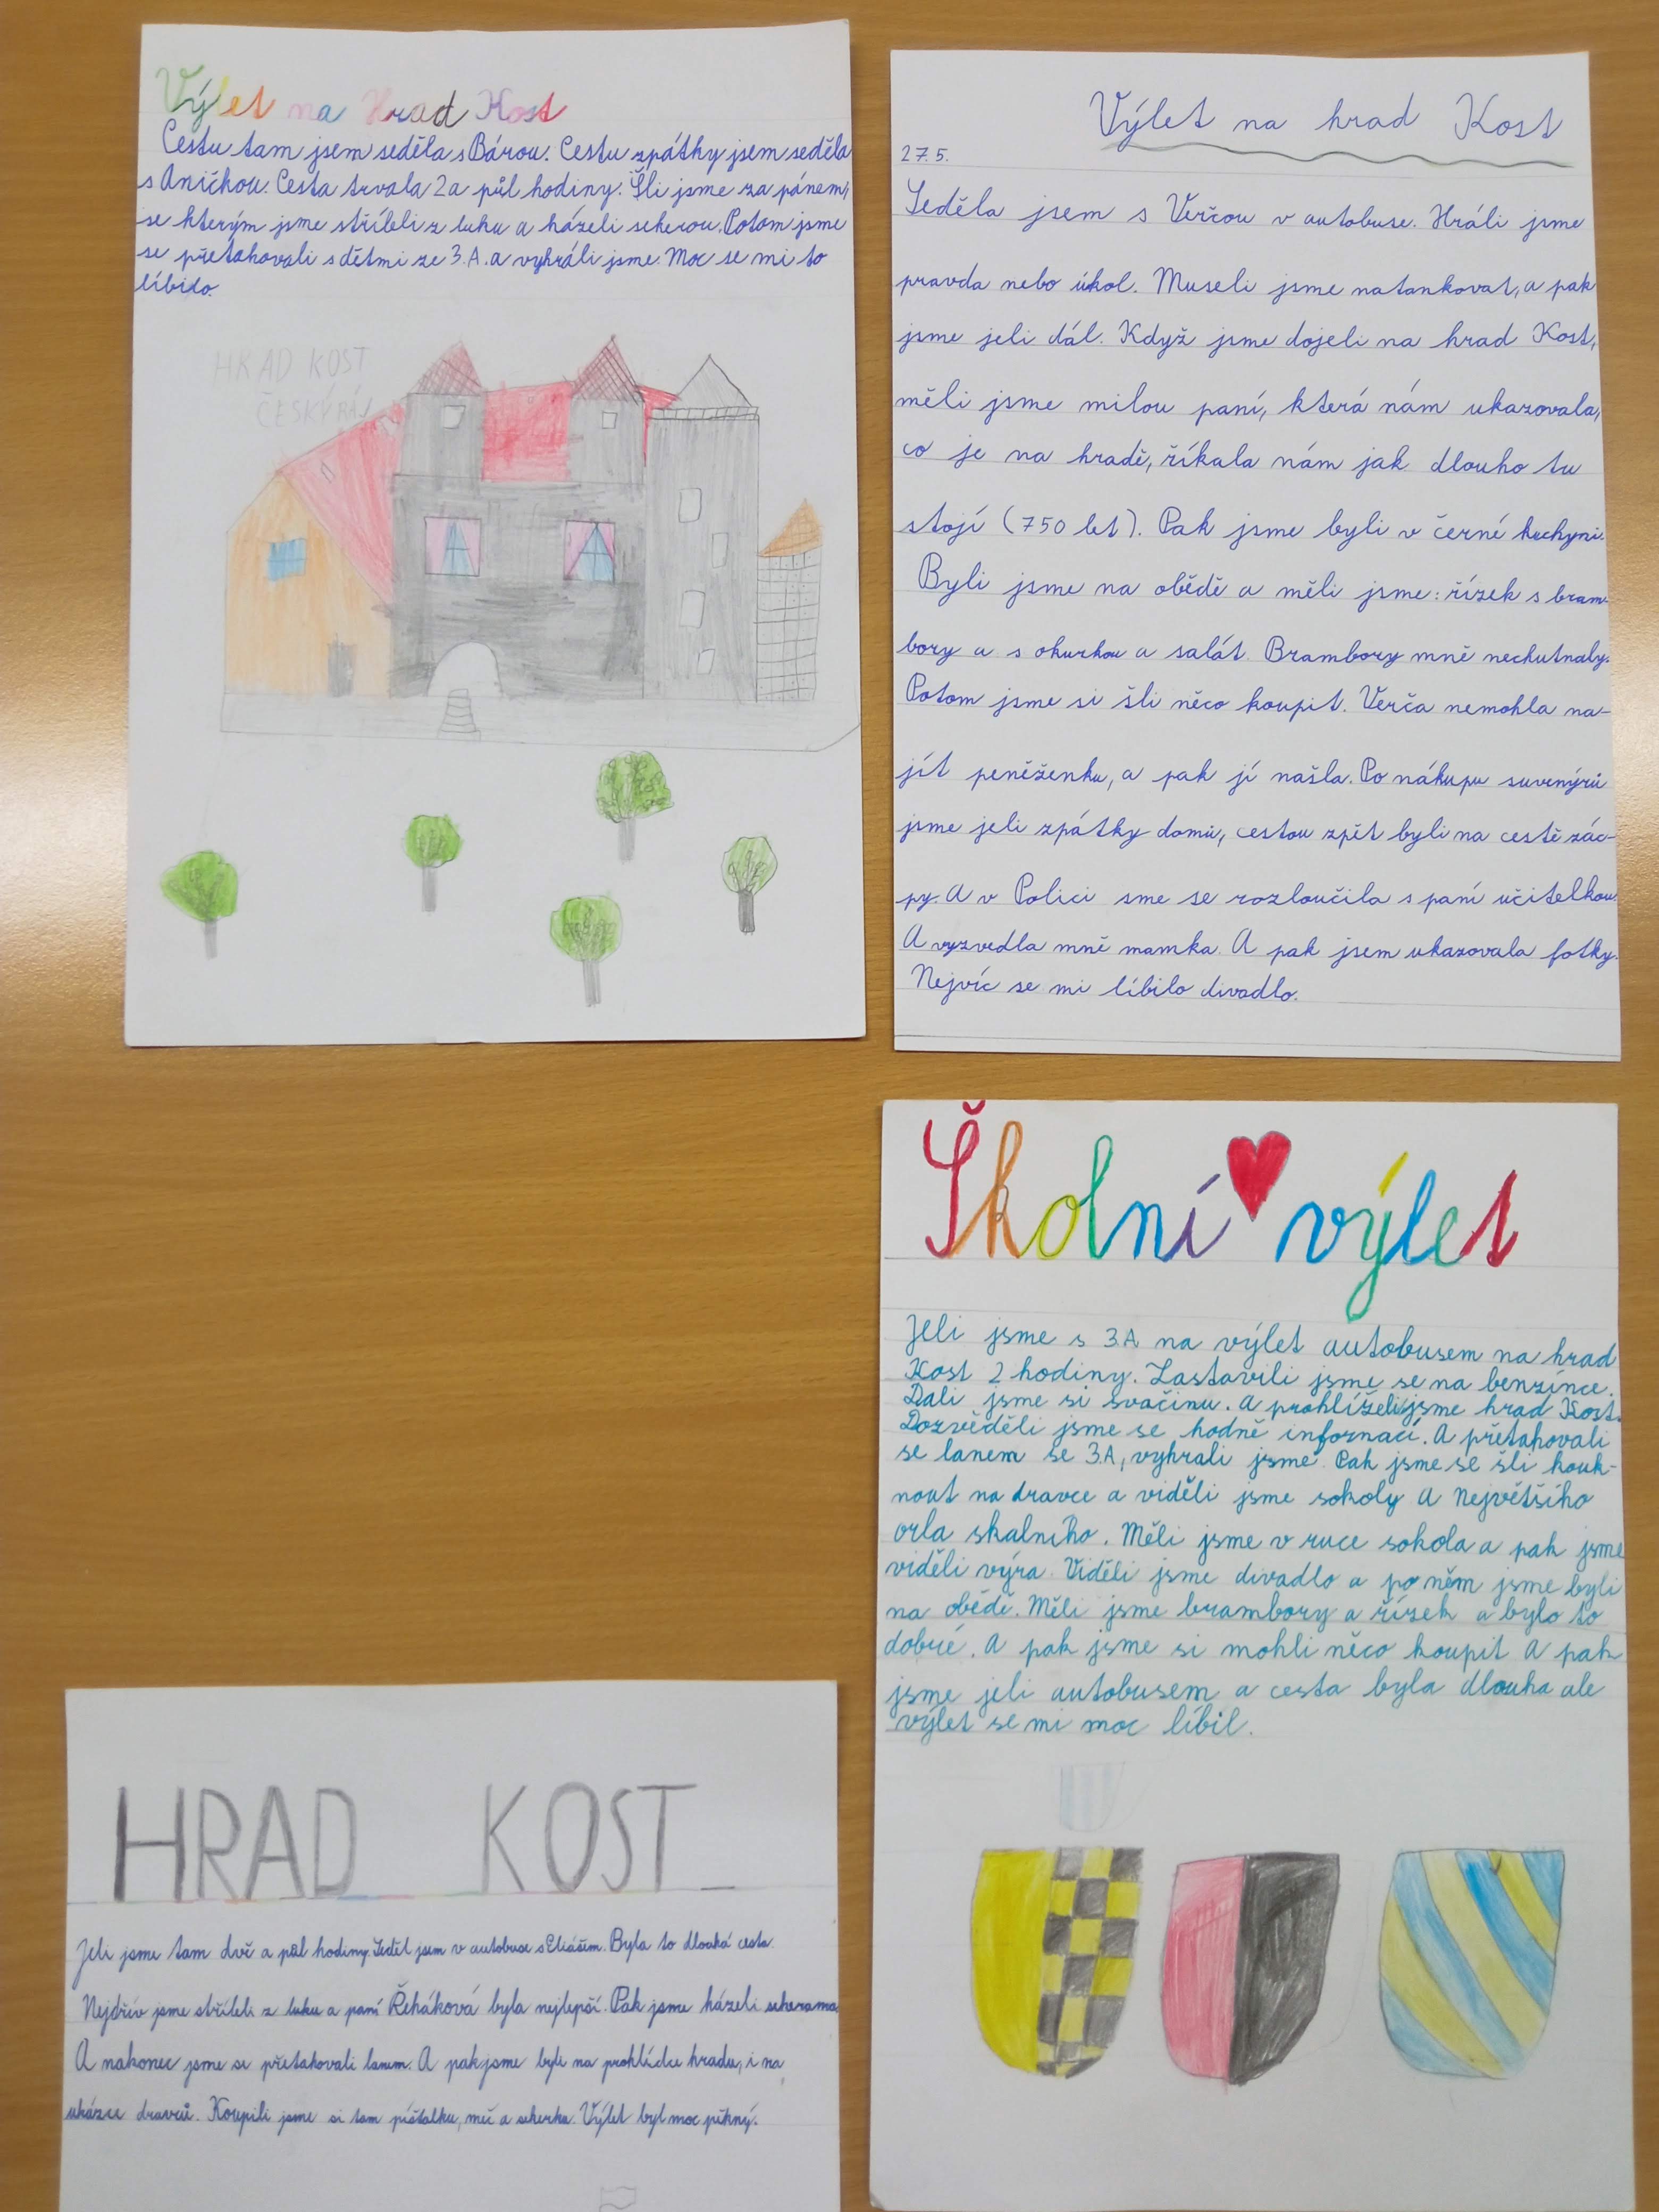 Výlet na Hrad Kost
Cestu tam jsem seděla s Bárou. Cestu zpátky jsem seděla
s Aničkou. Cesta trvala 2 a půl hodiny. Šli jsme za pánem,
se kterým jsme stříleli z luku a házeli sekerou. Potom jsme
se přetahovali s dětmi ze 3.A. a vyhráli jsme. Moc se mi to
líbilo.
HRAD KOST
ČESKÝ RÁJ
Výlet na hrad Kost
27.5.
Seděla jsem s Verčou v autobuse. Hráli jsme
pravda nebo úkol. Museli jsme natankovat, a pak
jsme jeli dál. Když jsme dojeli na hrad Kost,
měli jsme milou paní, která nám ukazovala,
co je na hradě, říkala nám jak dlouho tu
stojí (750 let). Pak jsme byli v černé kuchyni.
Byli jsme na obědě a měli jsme: řízek s bram-
bory a s okurkou a salát. Brambory mně nechutnaly.
Potom jsme si šli něco koupit. Verča nemohla na-
jít peněženku, a pak jí našla. Po nákupu suvenýrů
jsme jeli zpátky domů, cestou zpět byli na cestě zác-
py. A v Polici sme se rozloučila s paní učitelkou.
A vyzvedla mně mamka. A pak jsem ukazovala fotky.
Nejvíc se mi líbilo divadlo.
Školní výlet
Jeli jsme s 3.A na výlet autobusem na hrad
Kost 2 hodiny. Zastavili jsme se na benzínce.
Dali jsme si svačinu. A prohlíželi jsme hrad Kost.
Dozvěděli jsme se hodně informací. A přetahovali
se lanem se 3.A, vyhrali jsme. Pak jsme se šli kouk-
nout na dravce a viděli jsme sokoly A Největšího
orla skalního. Měli jsme v ruce sokola a pak jsme
viděli výra. Viděli jsme divadlo a po něm jsme byli
na obědě. Měli jsme brambory a řízek a bylo to
dobré. A pak jsme si mohli něco koupit A pak
jsme jeli autobusem a cesta byla dlouha ale
výlet se mi moc líbil.
HRAD KOST
Jeli jsme tam dvě a půl hodiny. Seděl jsem v autobuse s Eliášem. Byla to dlouhá cesta.
Nejdřív jsme stříleli z luku a paní Řeháková byla nejlepší. Pak jsme házeli sekerama.
A nakonec jsme se přetahovali lanem. A pak jsme byli na prohlídce hradu, i na
ukázce dravců. Koupili jsme si tam píšťalku, meč a sekerka. Výlet byl moc pěkný.